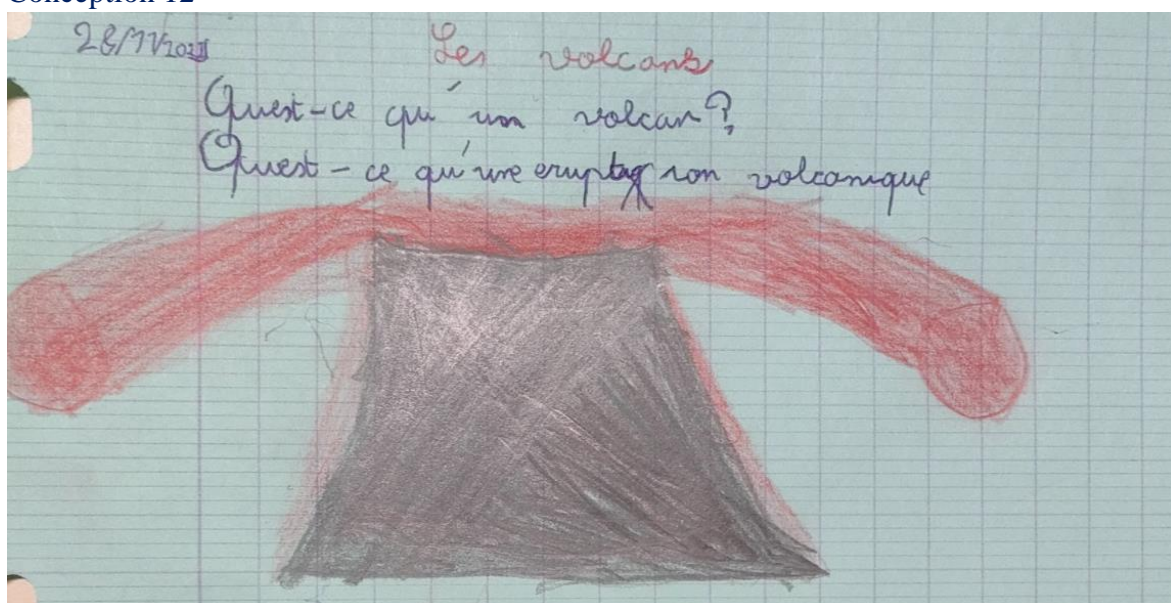 Conception 12
Les volcans
Quest-ce qu'un volcan?
Quest-ce qu'une eruption volcanique